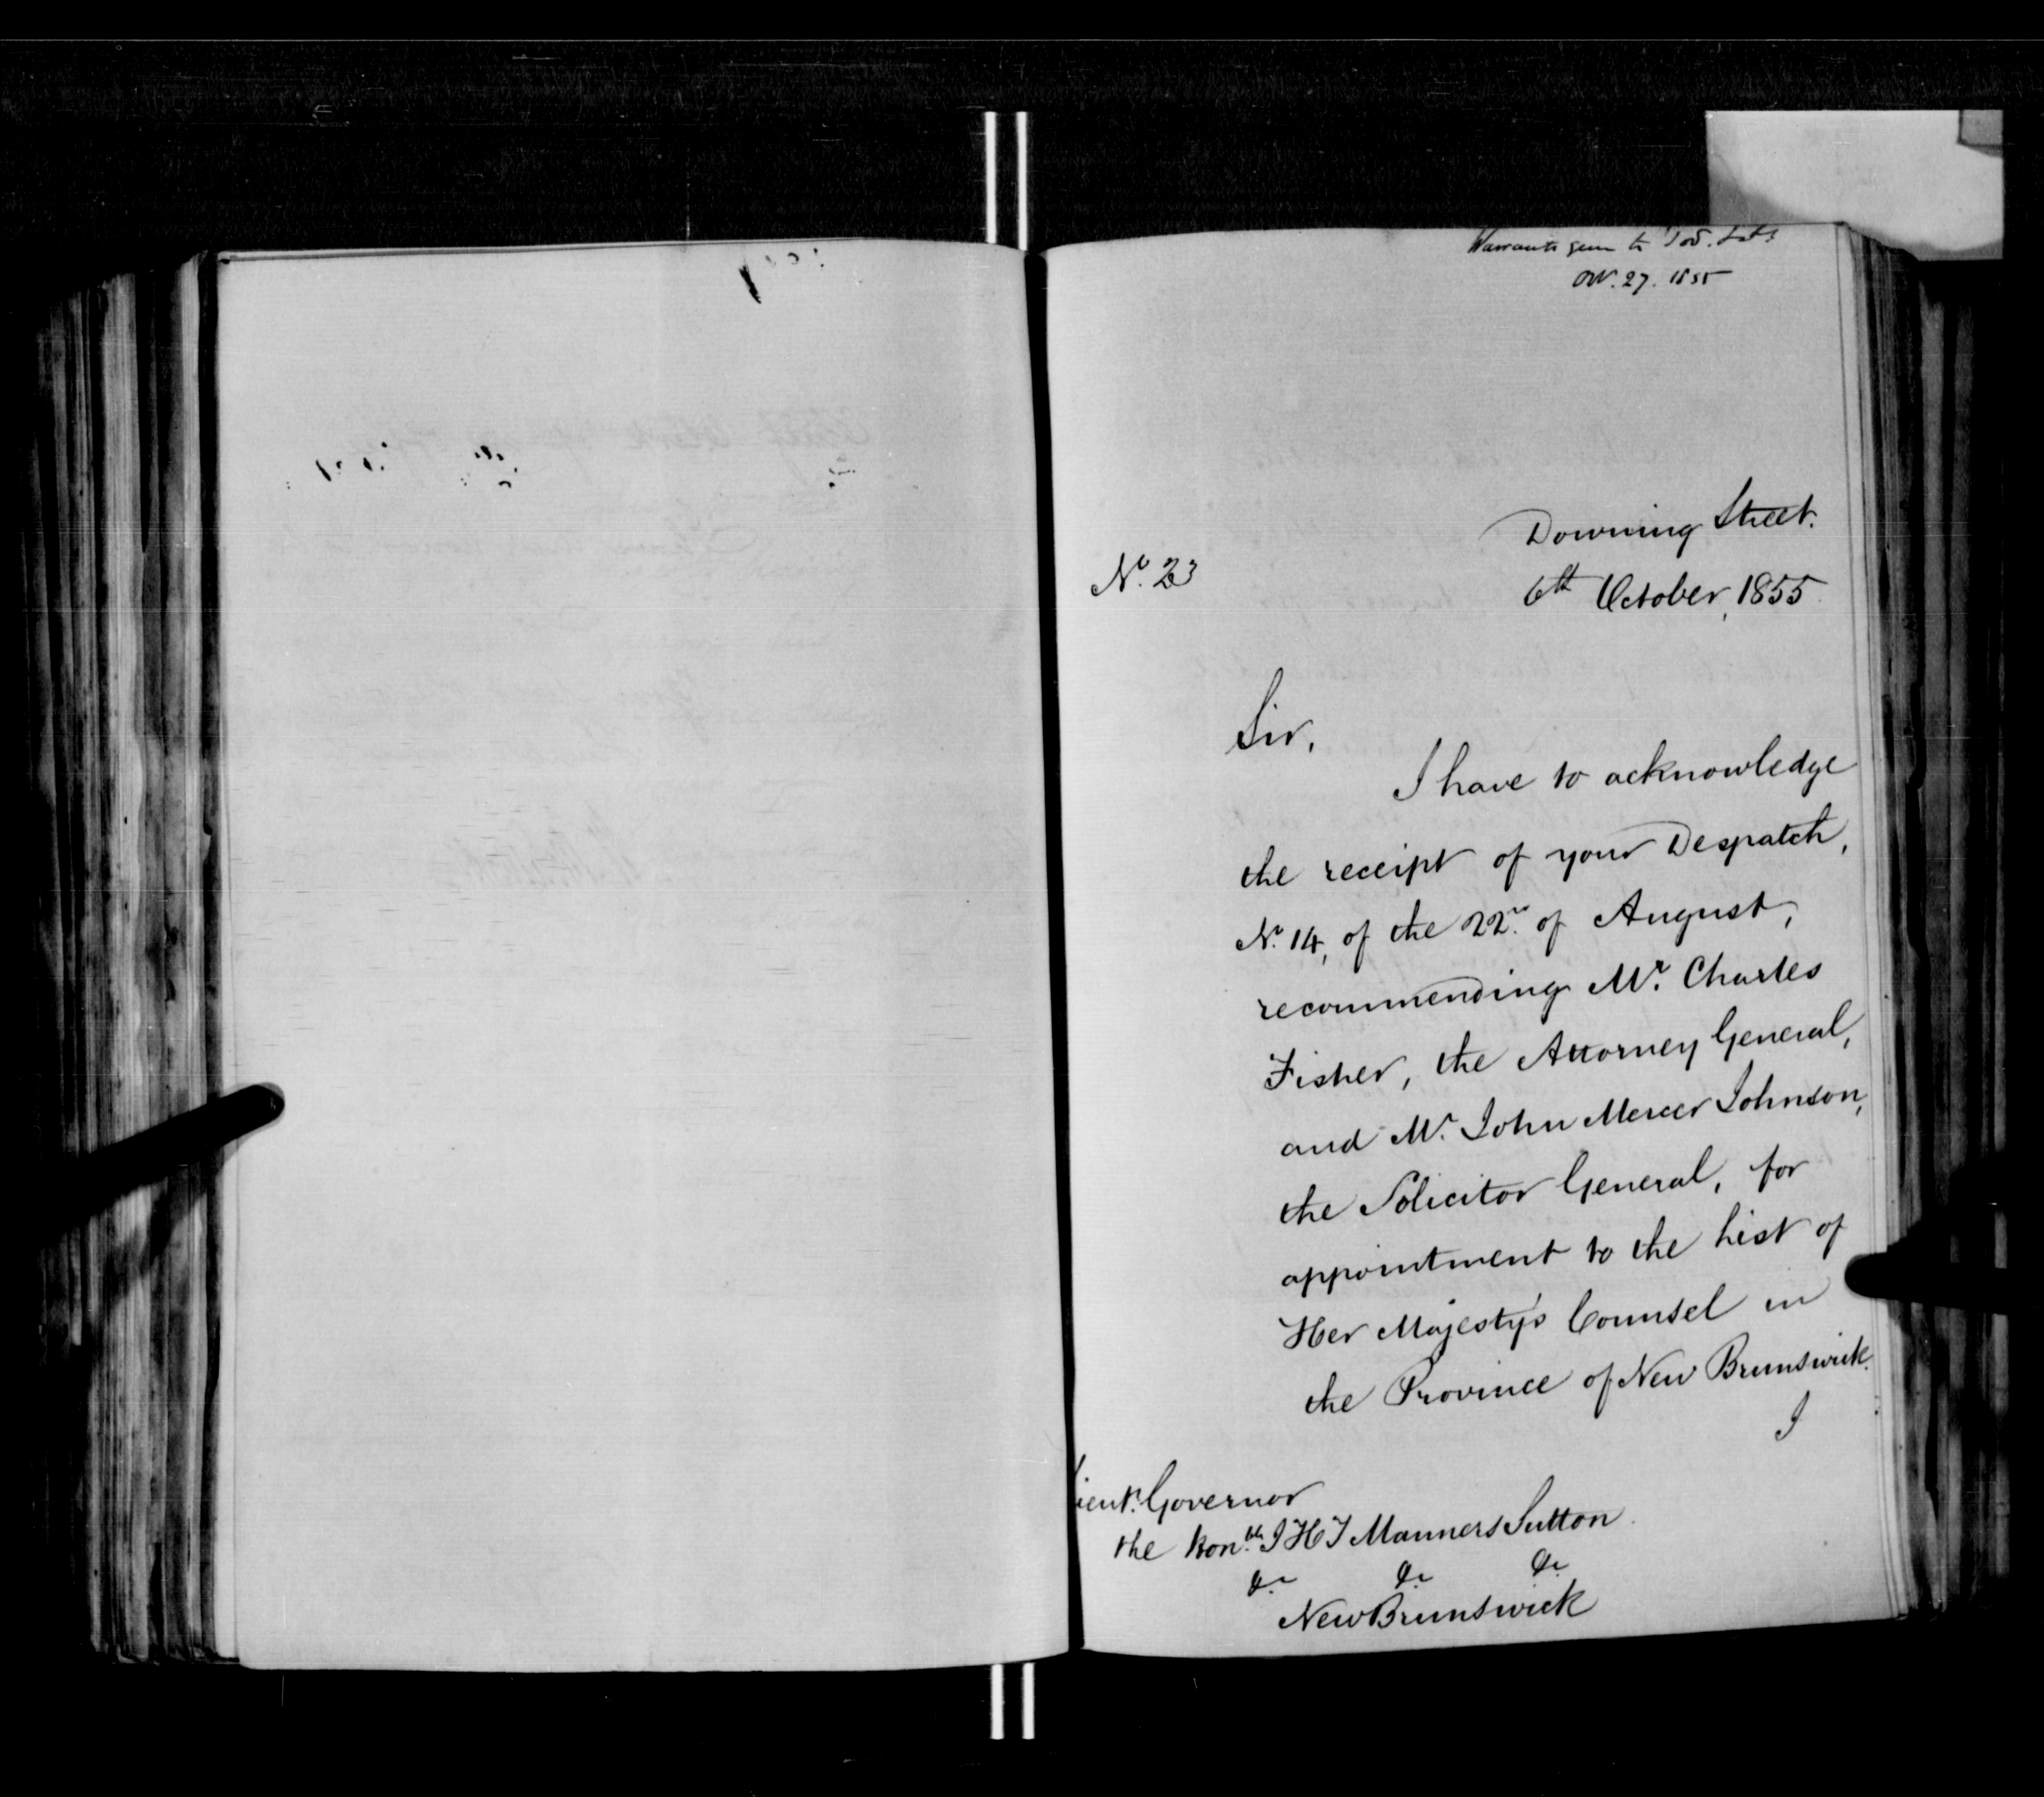 Warrants
27. 1855
Downing Street.
No. 23
6th October, 1855.
Sir,
I have to acknowledge
the receipt of your Despatch,
No. 14, of the 22nd of August,
recommending Mr. Charles
Fisher, the Attorney General,
and Mr. John Mercer Johnson,
the Solicitor General, for
appointment to the list of
Her Majesty's Counsel in
the Province of New Brunswick.
I
Lieut. Governor
the Honble J H T Manners Sutton.
&c &c &c
New Brunswick